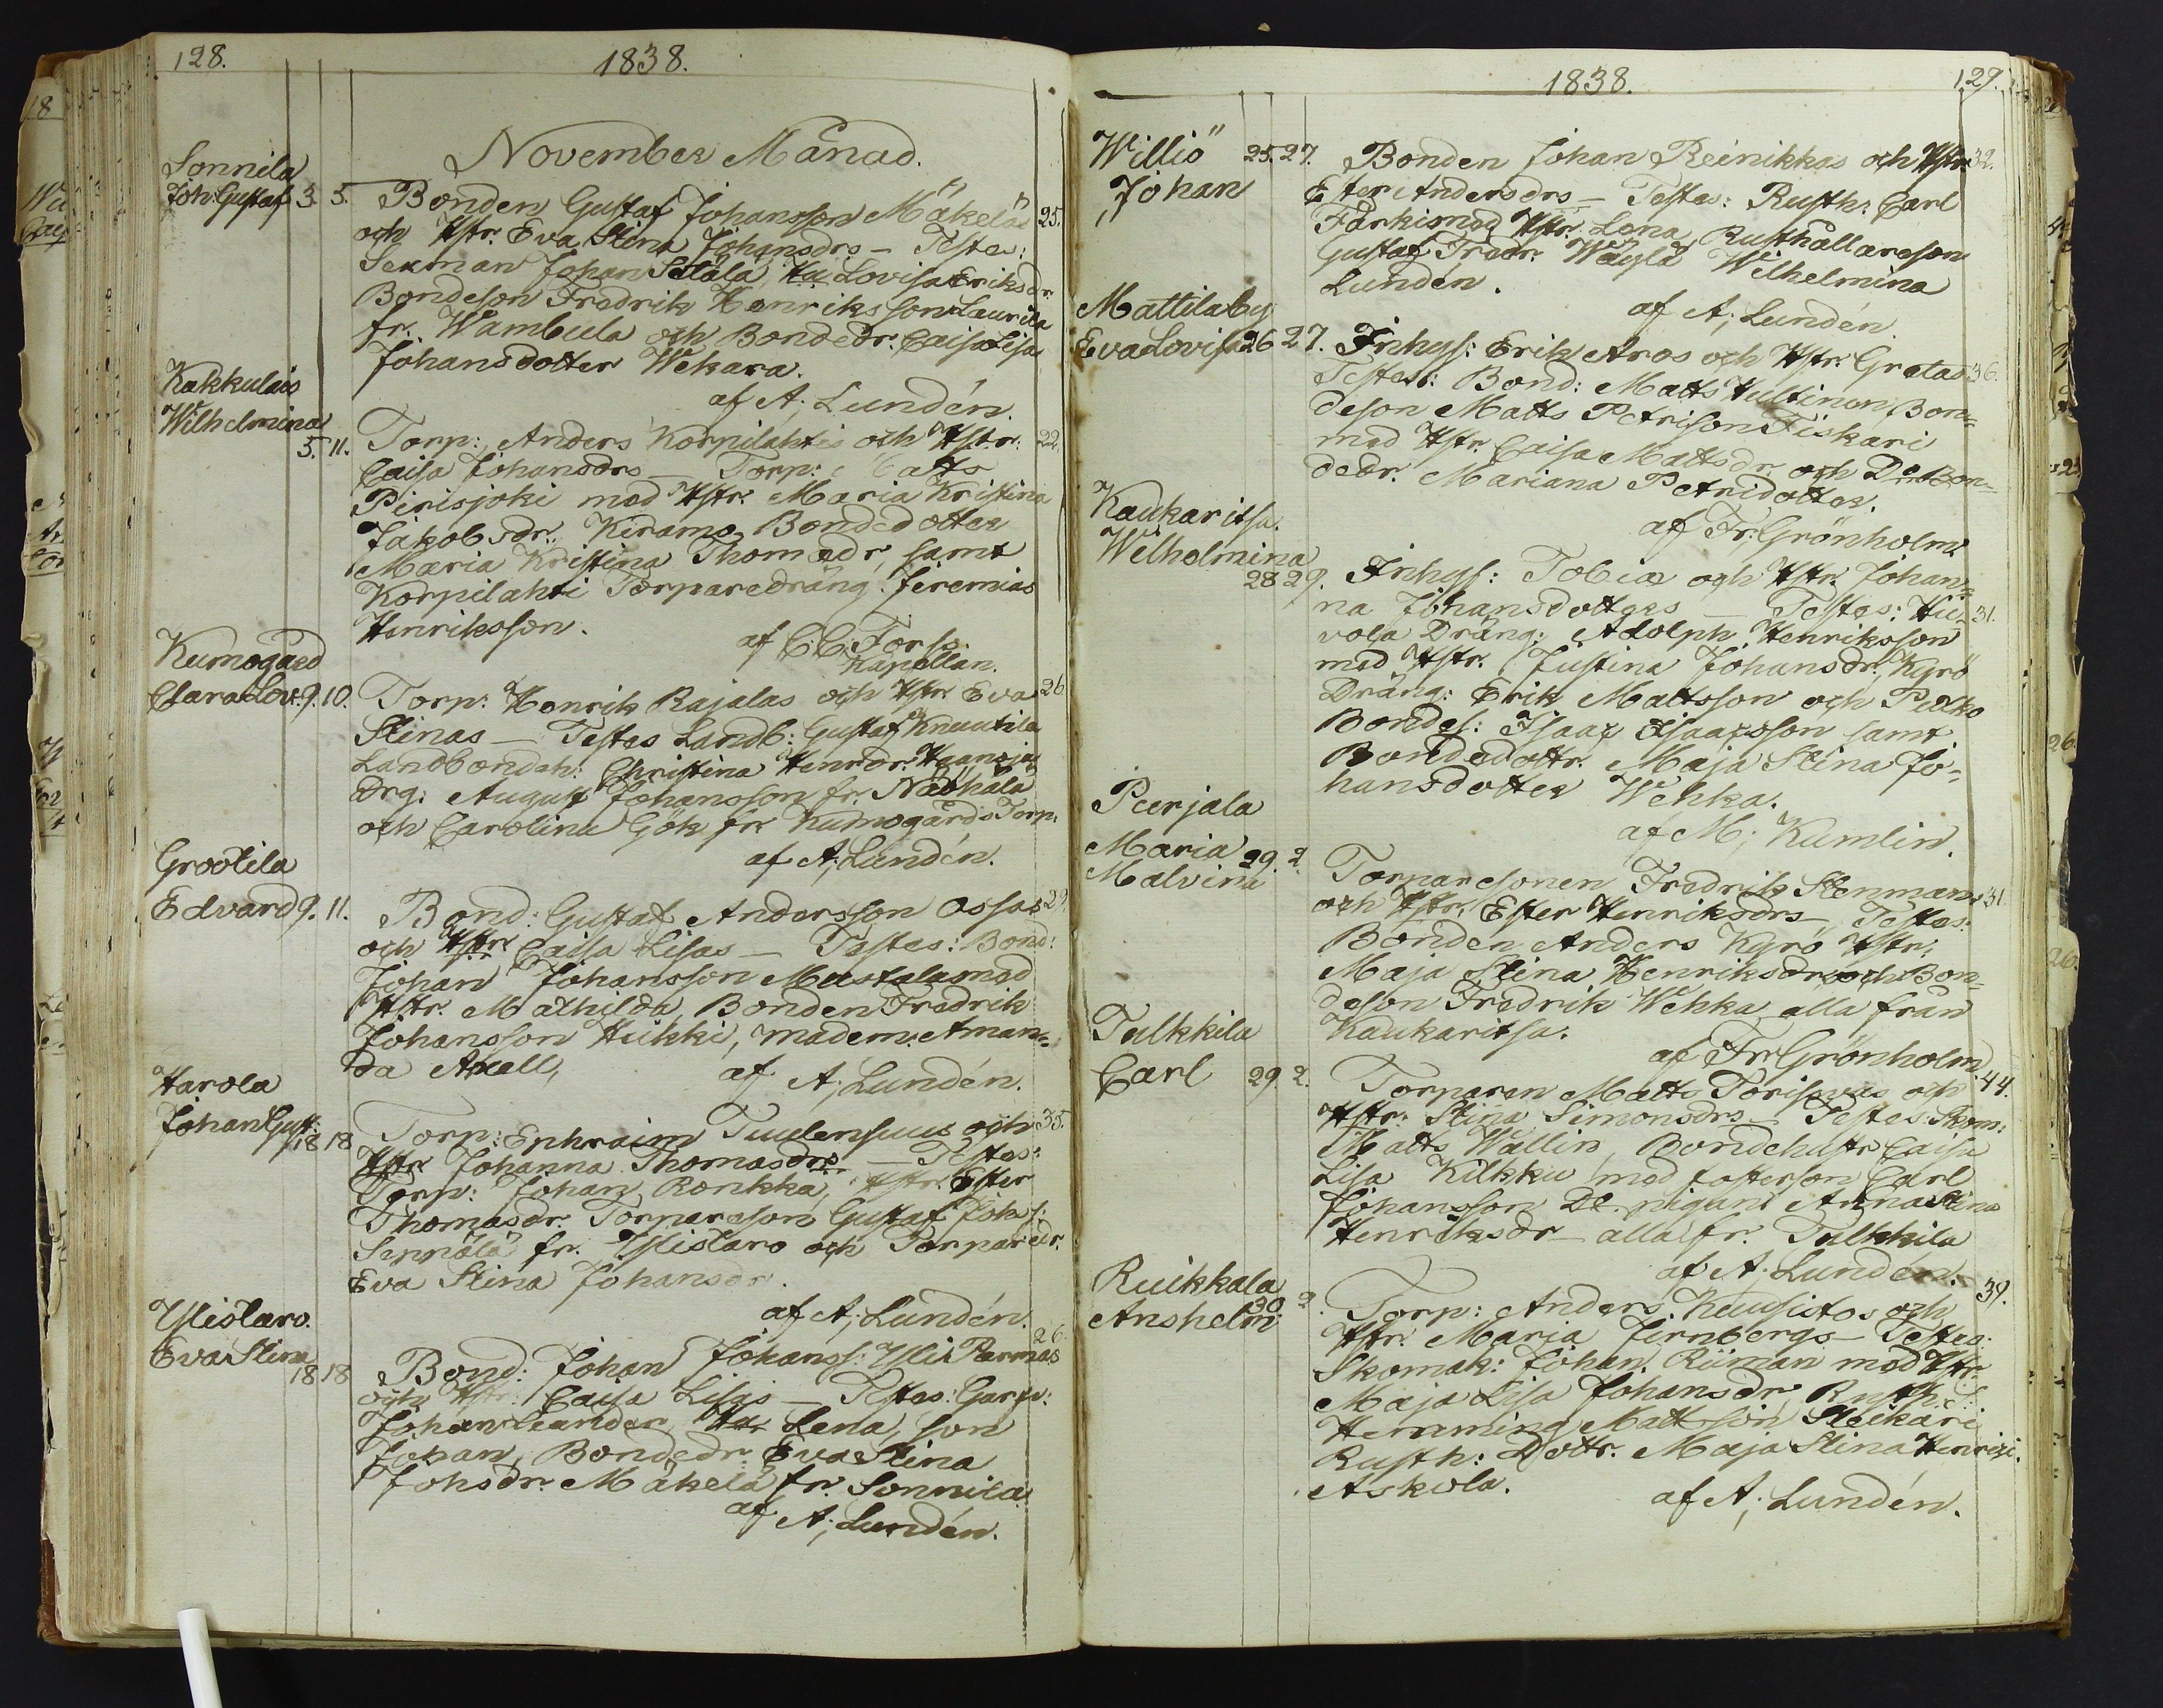 128.
1838.
November Månad.
Sonnila
Joh: Gustaf 3. 5. Bonden Gustaf Johansson Mäkeläs 25.
och Hstr. Eva Stina Johansdrs – Testes:
Sexman Johan Sälälä, Hu Lovisa Eriksdr
Bondeson Fredrik Henriksson Laurila
fr. Wambula och Bondedr: Caisa Lisa
Johansdotter Wekara.
af A; Lundén.
Kakkulais
Wilhelmina
5. 11. Torp: Anders Korpilahtis och Hstr: 22.
Caisa Johansdrs – Torp: Matts
Pirisjoki med Hstr. Maria Kristina
Jakobsdr. Kiramo Bondedotter
Maria Kristina Thomsdr, samt
Korpilahti Torparedräng: Jeremias
Henriksson.
af C C Forss.
Kapellan.
Kumogård
Clara Lov. 9. 10. Torp: Henrik Rajalas och Hstr. Eva 26.
Stinas – Testes Landb: Gustaf Knuutila
Landbondeh: Christina Henrdr. Haanoja
Drg: August Johansson fr. Näöhälä
och Carolina Gök fr. Kumogårds Torp.
af A; Lundén.
Grootila
Edvard 9. 11. Bond: Gustaf Andersson Ossas 29.
och Hstr: Caisa Lisas – Testes: Bond:
Johan Johansson Mustala med
Hstr. Mathilda, Bonden Fredrik
Johansson Hiikki, Madem: Aman=
da Axell,
af A; Lundén.
Harola
Johan Gust:
18 18 Torp: Ephraim Tuulensuus och 35.
Hstr Johanna Thomasdrs – Testes:
Torp: Johan Ronkka, Hstr: Ester
Thomasdr. Torpareson Gustaf Johs:
Seppälä fr. Ylistaro och Torparedr.
Eva Stina Johansdr.
af A; Lundén.
Ylistaro.
Eva Stina
18 18 Bond: Johan Johanss: Yli Parmas 26.
och Hstr: Caisa Lisas – Testes: Garfv:
Johan Leander Hu Lena, son
Johan, Bondedr. Eva Stina
Johsdr. Mäkelä fr. Sonnila
af A; Lundén.
1838.
129.
Williö 25. 27. Bonden Johan Reinikkas och Hstr: 32.
Johan
Ester Andersdrs – Testes: Rusth: Carl
Färki med Hstr. Lena, Rusthållareson
Gustaf Fredr. Wäylä Wilhelmina
Lundén.
af A; Lundén
Mattilaby
Eva Lovisa 26 27. Inhys: Erik Aros och Hstr: Gretas 36.
Testes: Bond: Matts Huttinen, Bon=
deson Matts Petrison Fiskari
med Hstr. Caisa Mattsdr. och Dr Bon=
dedr. Mariana Petridotter.
af Fr; Grönholm.
Kaukaritsa.
Wilhelmina
28 29. Inhys: Tobias och Hstr: Johan=
na Johansdotters – Testes: Hu= 31.
vola Dräng: Adolph Henriksson
med Hstr. Justina Johansdr, Kyrö
Dräng: Erik Mattsson och Pelko
Bondes: Isaac Isaacsson samt
Bondedottr. Maja Stina Jo=
hansdotter Wehka.
af M; Kumlin.
Peerjala
Maria 29. 2.
Malvina
Torparesonen Fredrik Stenmans 31.
och Hstr: Ester Henriksdrs – Testes:
Bonden Anders Kyrö Hstr:
Maja Stina Henriksdr och Bon=
deson Fredrik Wehka alla från
Kaukaritsa.
af Fr Grönholm
Tulkkila
Carl 29 2. Torparen Matts Torispäs och 44.
Hstr: Stina Simonsdrs – Testes: Skom:
Matts Wallin, Bondehustr Caisa
Lisa Kilkku med fosterson Carl
Johansson Dl. pigan Anna Stina
Henriksdr – alla fr. Tulkkila
af A; Lundén.
Ruikkala 39.
30 2.
Anshelm
Torp: Anders Keusistos och
Hstr: Maria Jernbergs – Testes:
Skomak: Johan Riiman med Hstr.
Maja Lisa Johansdr, Rusth: S:
Hemming Mattsson Steikari
Rusth: Dottr. Maja Stina Henrici.
Askola.
af A; Lundén.